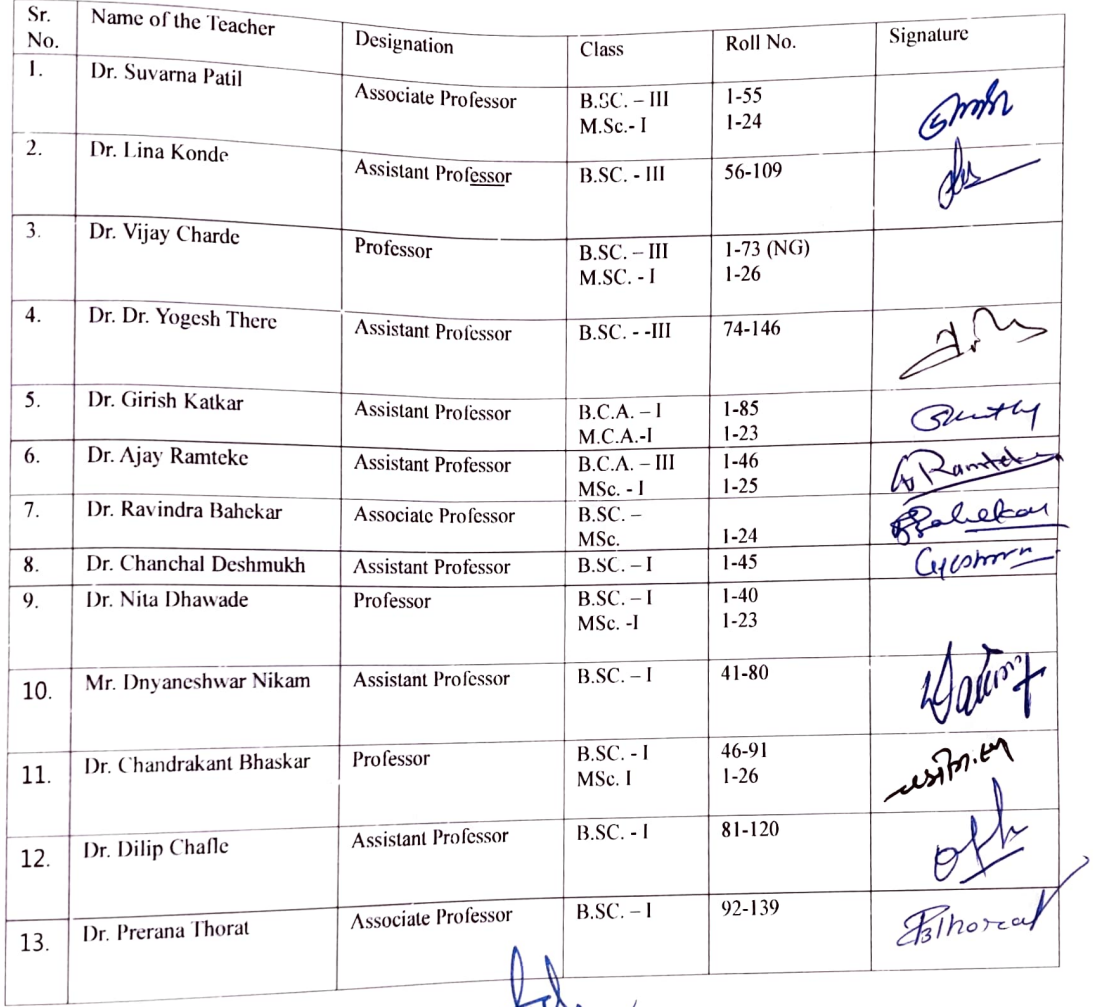 Sr. No. Name of the Teacher Designation Class Roll No. Signature
1. Dr. Suvarna Patil Associate Professor B.SC. – III 1-55
M.Sc.- I 1-24
2. Dr. Lina Konde Assistant Professor B.SC. - III 56-109
3. Dr. Vijay Charde Professor B.SC. – III 1-73 (NG)
M.SC. - I 1-26
4. Dr. Dr. Yogesh There Assistant Professor B.SC. - -III 74-146
5. Dr. Girish Katkar Assistant Professor B.C.A. – I 1-85
M.C.A.-I 1-23
6. Dr. Ajay Ramteke Assistant Professor B.C.A. – III 1-46 Ramteke
MSc. - I 1-25
7. Dr. Ravindra Bahekar Associate Professor B.SC. – Bahekar
MSc. 1-24
8. Dr. Chanchal Deshmukh Assistant Professor B.SC. – I 1-45
9. Dr. Nita Dhawade Professor B.SC. – I 1-40
MSc. -I 1-23
10. Mr. Dnyaneshwar Nikam Assistant Professor B.SC. – I 41-80
11. Dr. Chandrakant Bhaskar Professor B.SC. - I 46-91
MSc. I 1-26
12. Dr. Dilip Chafle Assistant Professor B.SC. - I 81-120
13. Dr. Prerana Thorat Associate Professor B.SC. – I 92-139 Thorat